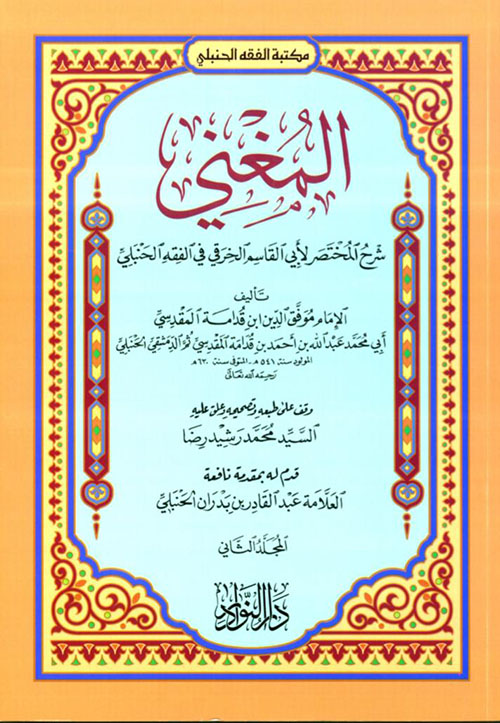 مكتبة الفقه الحنبلي
المغني
شرح المختصر لأبي القاسم الخرقي في الفقه الحنبلي
تأليف
الإمام موفق الدين ابن قدامة المقدسي
أبي محمد عبد الله بن أحمد بن قدامة المقدسي ثم الدمشقي الحنبلي
المولود سنة ٥٤١ هـ - المتوفى سنة ٦٢٠ هـ
رحمه الله تعالى
وقف على طبعه وتصحيحه وعلق عليه
السيد محمد رشيد رضا
قدم له بمقدمة نافعة
العلامة عبد القادر بن بدران الحنبلي
المجلد الثاني
دار النوادر